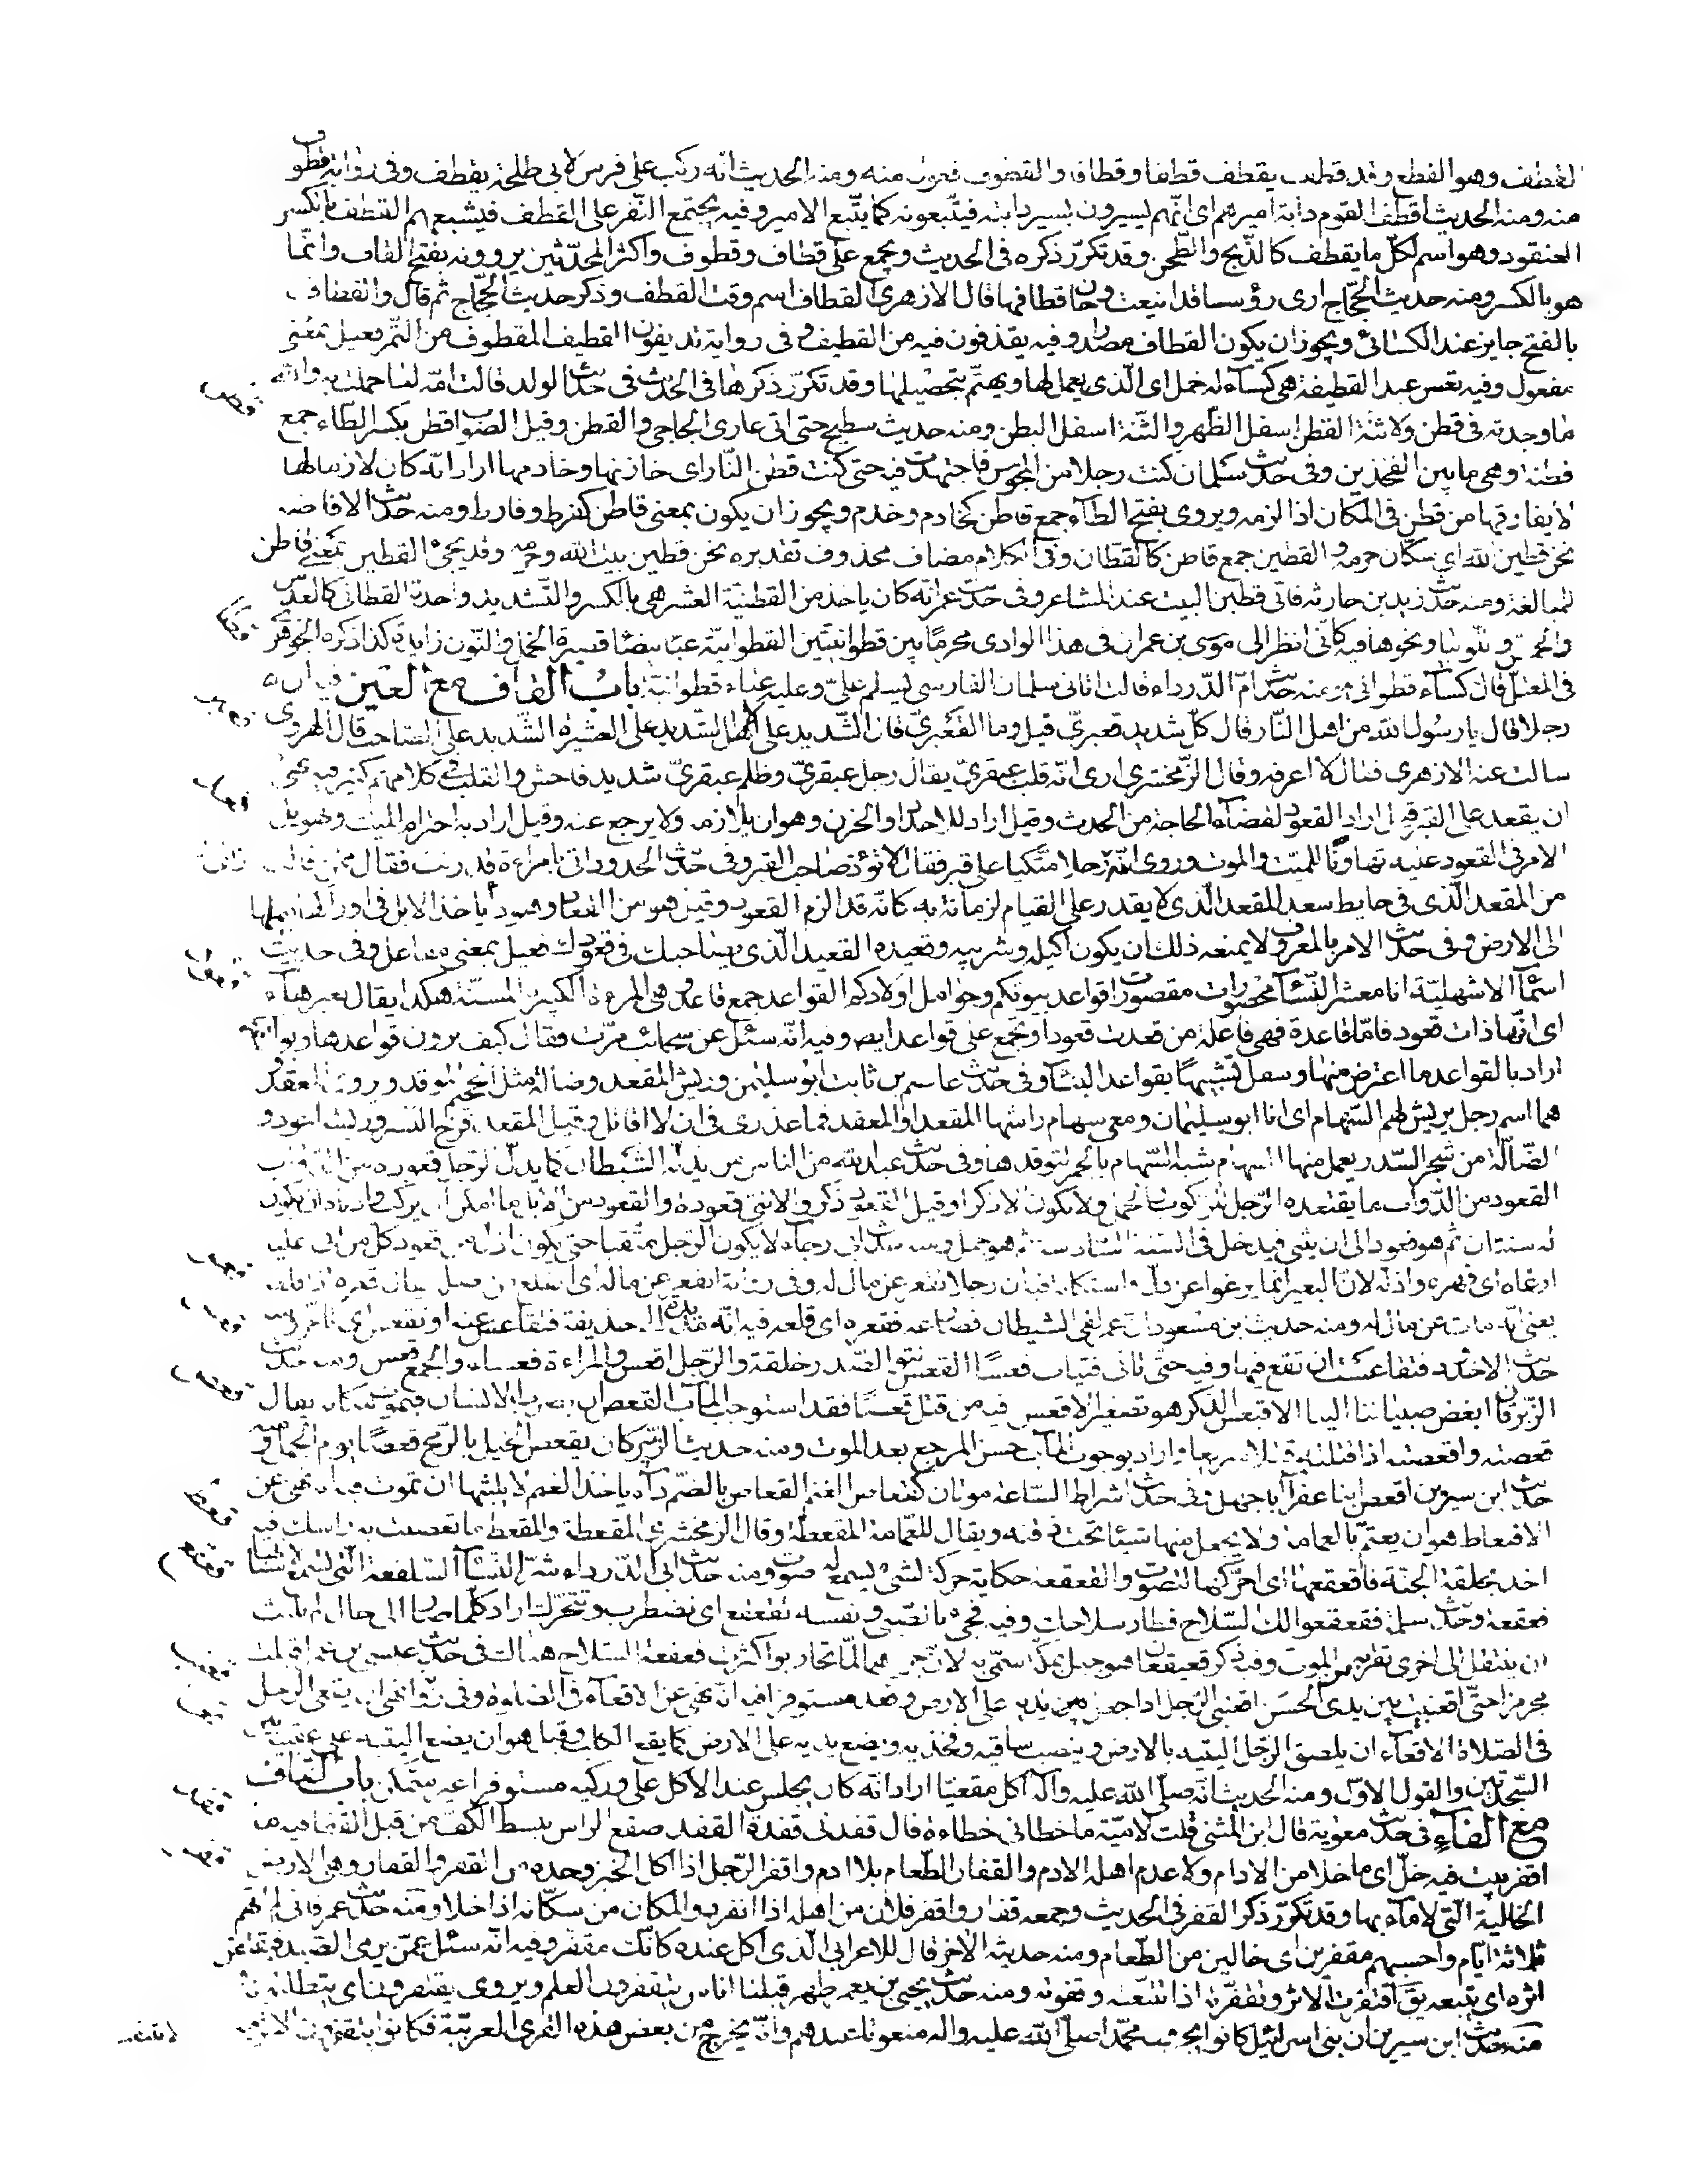 القطف وهو القطع وقد قطف يقطف قطفا وقطافا والقطوف فعول منه ومنه الحديث انّه ركب على فرس لابى طلحة يقطف وفى رواية قطوف
منه ومنه الحديث اقطف القوم دابة اميرهم اى انّهم يسيرون بسير دابته فيتّبعونه كما يتّبع الامير وفيه يجتمع النّفر على القطف فيشبعهم القطف بالكسر
العنقود وهو اسم لكلّ ما يقطف كالذّبح والطّحن وقد تكرّر ذكره فى الحديث ويجمع على قطاف وقطوف واكثر المحدّثين يروونه بفتح القاف وانّما
هو بالكسر ومنه حديث الحجّاج ارى رؤسا قد اينعت وحان قطافها قال الازهرى القطاف اسم وقت القطف وذكر حديث الحجّاج ثم قال والقطاف
بالفتح جايز عند الكسائى ويجوز ان يكون القطاف مصدرا وفيه يقذفون فيه من القطيف وفى رواية تديفون القطيف المقطوف من التّمر فعيل بمعنى
مفعول وفيه تعس عبد القطيفة هى كسآء له خمل اى الّذى يعمل لها ويهتمّ بتحصيلها وقد تكرّر ذكرها فى الحديث فى حديث الولد قالت امّه لما حملت به والله
ما وجدته فى قطن ولا ثنّة القطن اسفل الظّهر والثّنة اسفل البطن ومنه حديث سطيح حتى اتى عارى الجاجى والقطن وقيل الصّواب قطن بكسر الطّاء جمع
قطنة وهى ما بين الفخذين وفى حديث سلمان كنت رجلا من المجوس فاجتهدت فيه حتى كنت قطن النّار اى خازنها وخادمها اراد انّه كان لازما لها
لا يفارقها من قطن فى المكان اذا لزمه ويروى بفتح الطّآء جمع قاطن كخادم وخدم ويجوز ان يكون بمعنى قاطن كفرط وفارط ومنه حديث الافاضة
نحن قطين الله اى سكّان حرمه والقطين جمع قاطن كالقطّان وفى الكلام مضاف محذوف تقديره نحن قطين بيت الله وحرمه وقد يجئ القطين بمعنى قاطن
للمبالغة ومنه حديث زيد بن حارثه فانّى قطين البيت عند المشاعر وفى حديث عمر انّه كان ياخذ من القطنيّة العشر هى بالكسر والتّشديد واحدة القطانى كالعدس
والحمّص واللّوبيا ونحوها وفيه كانّى انظر الى موسى بن عمران فى هذا الوادى محرمًا بين قطوانيّتين القطوانيّة عباءة بيضاء قصيرة الخمل والنّون زايدة كذا ذكره الجوهرى
فى المعتلّ وقال كسآء قطوانى ومنه حديث امّ الدّرداء قالت اتانى سلمان الفارسى يسلم علىّ وعليه عباء قطوانيّة باب القاف مع العين فيه ان
رجلا قال يا رسول الله من اهل النّار قال كلّ شديد قعبرىّ قيل وما القعبرىّ قال الشّديد على الاهل الشّديد على العشيرة الشّديد على الصّاحب قال الهروى
سالت عنه الازهرى فقال لا اعرفه وقال الزّمخشرى ارى انّه قلب عبقرىّ يقال رجل عبقرىّ وظلم عبقرىّ شديد فاحش والقلب فى كلامهم كثير فيه نهى
ان يقعد على القبر قيل اراد القعود لقضآء الحاجة من الحدث وقيل اراد للاحداد والحزن وهو ان يلازمه ولا يرجع عنه وقيل اراد به احترام الميّت وتهويل
الامر فى القعود عليه تهاونًا بالميّت والموت وروى انّه راى رجلا متّكيا على قبر فقال لا تؤذ صاحب القبر وفى حديث الحدود اتى بامراءة قد زنت فقال ممّن قالت
من المقعد الّذى فى حايط سعد المقعد الّذى لا يقدر على القيام لزمانة به كانّه قد الزم القعود وقيل هو من القعاد وهو داء ياخذ الابل فى اوراكها فيميلها
الى الارض وفى حديث الامر بالمعروف لا يمنعه ذلك ان يكون اكيله وشريبه وقعيده القعيد الّذى يصاحبك فى قعودك فعيل بمعنى مفاعل وفى حديث
اسمآء الاشهليّة انا معشر النّسآء محصورات مقصورات قواعد بيوتكم وحوامل اولادكم القواعد جمع قاعد وهى المرءة الكبيرة المسنّة هكذا يقال بغير هآء
اى انّها ذات قعود فامّا قاعدة فهى فاعلة من قعدت قعودا ويجمع على قواعد ايضا وفيه انّه سئل عن سحائب مرّت فقال كيف ترون قواعدها وبواسقها
اراد بالقواعد ما اعترض منها وسفل تشبيهًا بقواعد البنآء وفى حديث عاصم بن ثابت ابو سليمن وريش المقعد وضالة مثل الجحيم الموقد ويروى المعقد
هما اسم رجل يريش لهم السّهام اى انا ابو سليمان ومعى سهام راشها المقعد او المعقد فما عذرى فى ان لا اقاتل وقيل المقعد فرخ النّسر وريشه اجود و
الضّالة من شجر السّدر يعمل منها السهام شبه السّهام بالجمر لتوقدها وفى حديث عبد الله من الناس من يذلّه الشّيطان كما يذلّ الرّجل قعوده من الدّوآب
القعود من الدّوآب ما يقتعده الرّجل للرّكوب والحمل ولا يكون الا ذكرا وقيل القعود ذكر والانثى قعودة والقعود من الابل ما امكن ان يركب وادناه ان يكون
له سنتان ثم هو قعود الى ان يثنى فيدخل فى السّنة السّادسة ثم هو جمل ومنه حديث ابى رجاء لا يكون الرّجل متّقيا حتى يكون اذلّ من قعود كلّ من اتى عليه
ارغاه اى قهره واذلّه لانّ البعير انّما يرغوا عن ذلّ واستكانة فيه ان رجلا انقعر عن مال له وفى رواية انقعر عن ماله اى انقلع من اصله يقال قعره اذا قلعه
يعنى انّه مات عن مال له ومنه حديث بن مسعود انّ عمر لقى الشّيطان فصارعه فقعره اى قلعه فيه انّه مدّ يده الى حذيفة فتقاعس عنه او تقعس اى تاخّر ومنه
حديث الاخدود فتقاعست ان تقع فيها وفيه حتى تاتى فتيات قعسًا القعس نتوّ الصّدر خلقة والرّجل اقعس والمراءة قعساء والجمع قعس ومنه حديث
الزّبرقان ابغض صبياننا الينا الاقيعس الذكر هو تصغير الاقعس فيه من قتل قعصًا فقد استوجب المآب القعص ان يضرب الانسان فيموت مكانه يقال
قعصته واقعصته اذا قتلته قتلا سريعا واراد بوجوب المآب حسن المرجع بعد الموت ومنه حديث الزّبير كان يقعص الخيل بالرّمح قعصًا يوم الجمل ومنه
حديث ابن سيرين اقعص ابنا عفرآء ابا جهل وفى حديث اشراط السّاعة موتان كقعاص الغنم القعاص بالضّم دآء ياخذ الغنم لا يلبثها ان تموت فيه انه نهى عن
الاقتعاط هو ان يعتمّ بالعمامة ولا يجعل منها شيئا تحت ذقنه ويقال للعمامة المقعطة وقال الزمخشرى المقعطة والمقعط ما تعصب به راسك فيه
اخذ بحلقة الجنّة فاقعقعها اى احرّكها لتصوّت والقعقعة حكاية حركة لشئ يسمع له صوت ومنه حديث ابى الدّرداء شرّ النّسآء السّلفعة الّتى تسمع لاسنانها
قعقعة وحديث سلمة فقعقعوا لك السّلاح فطار سلاحك وفيه فجىء بالصّبى ونفسه تقعقع اى تضطرب وتتحرّك اراد كلّما صار الى حال لم يلبث
ان ينتقل الى اخرى تقرّبه من الموت وفيه ذكر قعيقعان هو جبل بمكّة سمّى به لانّ جرهما لمّا تحاربوا كثرت قعقعة السّلاح هناك فى حديث عيسى بن عمر اقبلت
مجرمزا حتّى اقعنبيت بين يدى الحسن اقعنبى الرّجل اذا جعل يديه على الارض وقعد مستوفزا فيه انّه نهى عن الاقعآء فى الصّلوة وفى رواية نهى ان يقعى الرّجل
فى الصّلاة الاقعآء ان يلصق الرّجل اليتيه بالارض وينصب ساقيه وفخذيه ويضع يديه على الارض كما يقعى الكلب وقيل هو ان يضع اليتيه على عقبيه بين
السّجدتين والقول الاوّل ومنه الحديث انّه صلّى الله عليه وآله اكل مقعيًا اراد انّه كان يجلس عند الاكل على وركيه مستوفزا غير متمكّن باب القاف
مع الفاء فى حديث معوية قال ابن المثنى قلت لاميّة ما حطانى حطاءة قال قفدنى قفدة القفد صفع الراس ببسط الكفّ من قبل القفا فيه ما
اقفر بيت فيه خلّ اى ما خلا من الادام ولا عدم اهله الادم والقفار الطّعام بلا ادم واقفر الرّجل اذا اكل الخبز وحده من القفر والقفار وهى الارض
الخالية الّتى لا مآء بها وقد تكرّر ذكر القفر فى الحديث وجمعه قفار واقفر فلان من اهله اذا انفرد والمكان من سكّانه اذا خلا ومنه حديث عمر فانى لم اتهم
ثلاثة ايّام واحسبهم مقفرين اى خالين من الطّعام ومنه حديثه الآخر قال للاعرابى الّذى اكل عنده كانّك مقفر وفيه انّه سئل عمّن يرمى الصّيد فيقتفر
اثره اى يتبعه يقال اقتفرت الاثر وتقفّرته اذا تتبّعته وقفوته ومنه حديث يحيى بن يعمر ظهر قبلنا اناس يتقفرون العلم ويروى يقتفرون اى يتطلبونه
منه حديث ابن سيرين ان بنى اسرائيل كانوا يجدون محمّدا صلّى الله عليه واله منعوتا عندهم وانّه يخرج من بعض هذه القرى العربيّة فكانوا يقتفرون الاثر